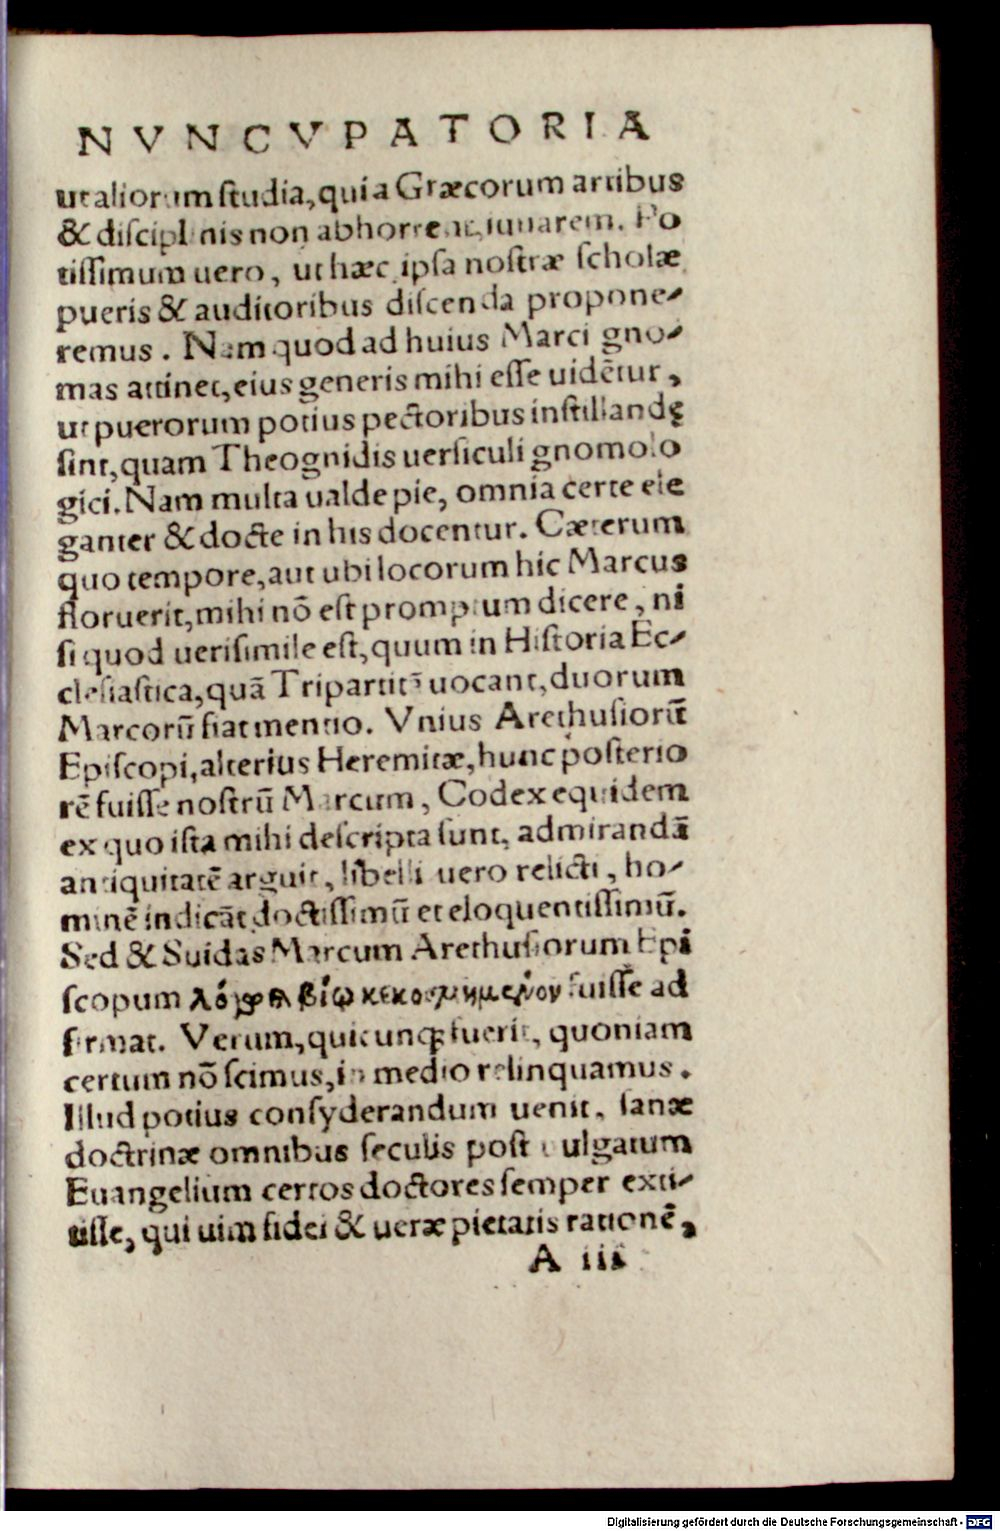 NVNCVPATORIA
ut aliorum ſtudia, qui a Græcorum artibus
& diſciplinis non abhorrent, iuuarem. Po
tiſſimum uero, ut hæc ipſa noſtræ ſcholæ
pueris & auditoribus diſcenda propone-
remus. Nam quod ad huius Marci gno-
mas attinet, eius generis mihi eſſe uidētur,
ut puerorum potius pectoribus inſtillandę
ſint, quam Theognidis uerſiculi gnomolo
gici. Nam multa ualde pie, omnia certe ele
ganter & docte in his docentur. Cæterum
quo tempore, aut ubi locorum hic Marcus
floruerit, mihi nō eſt promptum dicere, ni
ſi quod ueriſimile eſt, quum in Hiſtoria Ec-
cleſiaſtica, quā Tripartitā uocant, duorum
Marcorū fiat mentio. Vnius Arethuſiorū
Epiſcopi, alterius Heremitæ, hunc poſterio
rē fuiſſe noſtrū Marcum, Codex equidem
ex quo iſta mihi deſcripta ſunt, admirandā
antiquitatē arguit, libelli uero relicti, ho-
minē indicāt doctiſſimū et eloquentiſſimū.
Sed & Suidas Marcum Arethuſiorum Epi
ſcopum λόγῳ βίῳ κεκοσμημένον fuiſſe ad
firmat. Verum, quicunqꝫ fuerit, quoniam
certum nō ſcimus, in medio relinquamus.
Illud potius conſyderandum uenit, ſanæ
doctrinæ omnibus ſeculis poſt uulgatum
Euangelium certos doctores ſemper exti-
tiſſe, qui uim fidei & ueræ pietatis rationē,
A iii
Digitalisierung gefördert durch die Deutsche Forschungsgemeinschaft - DFG